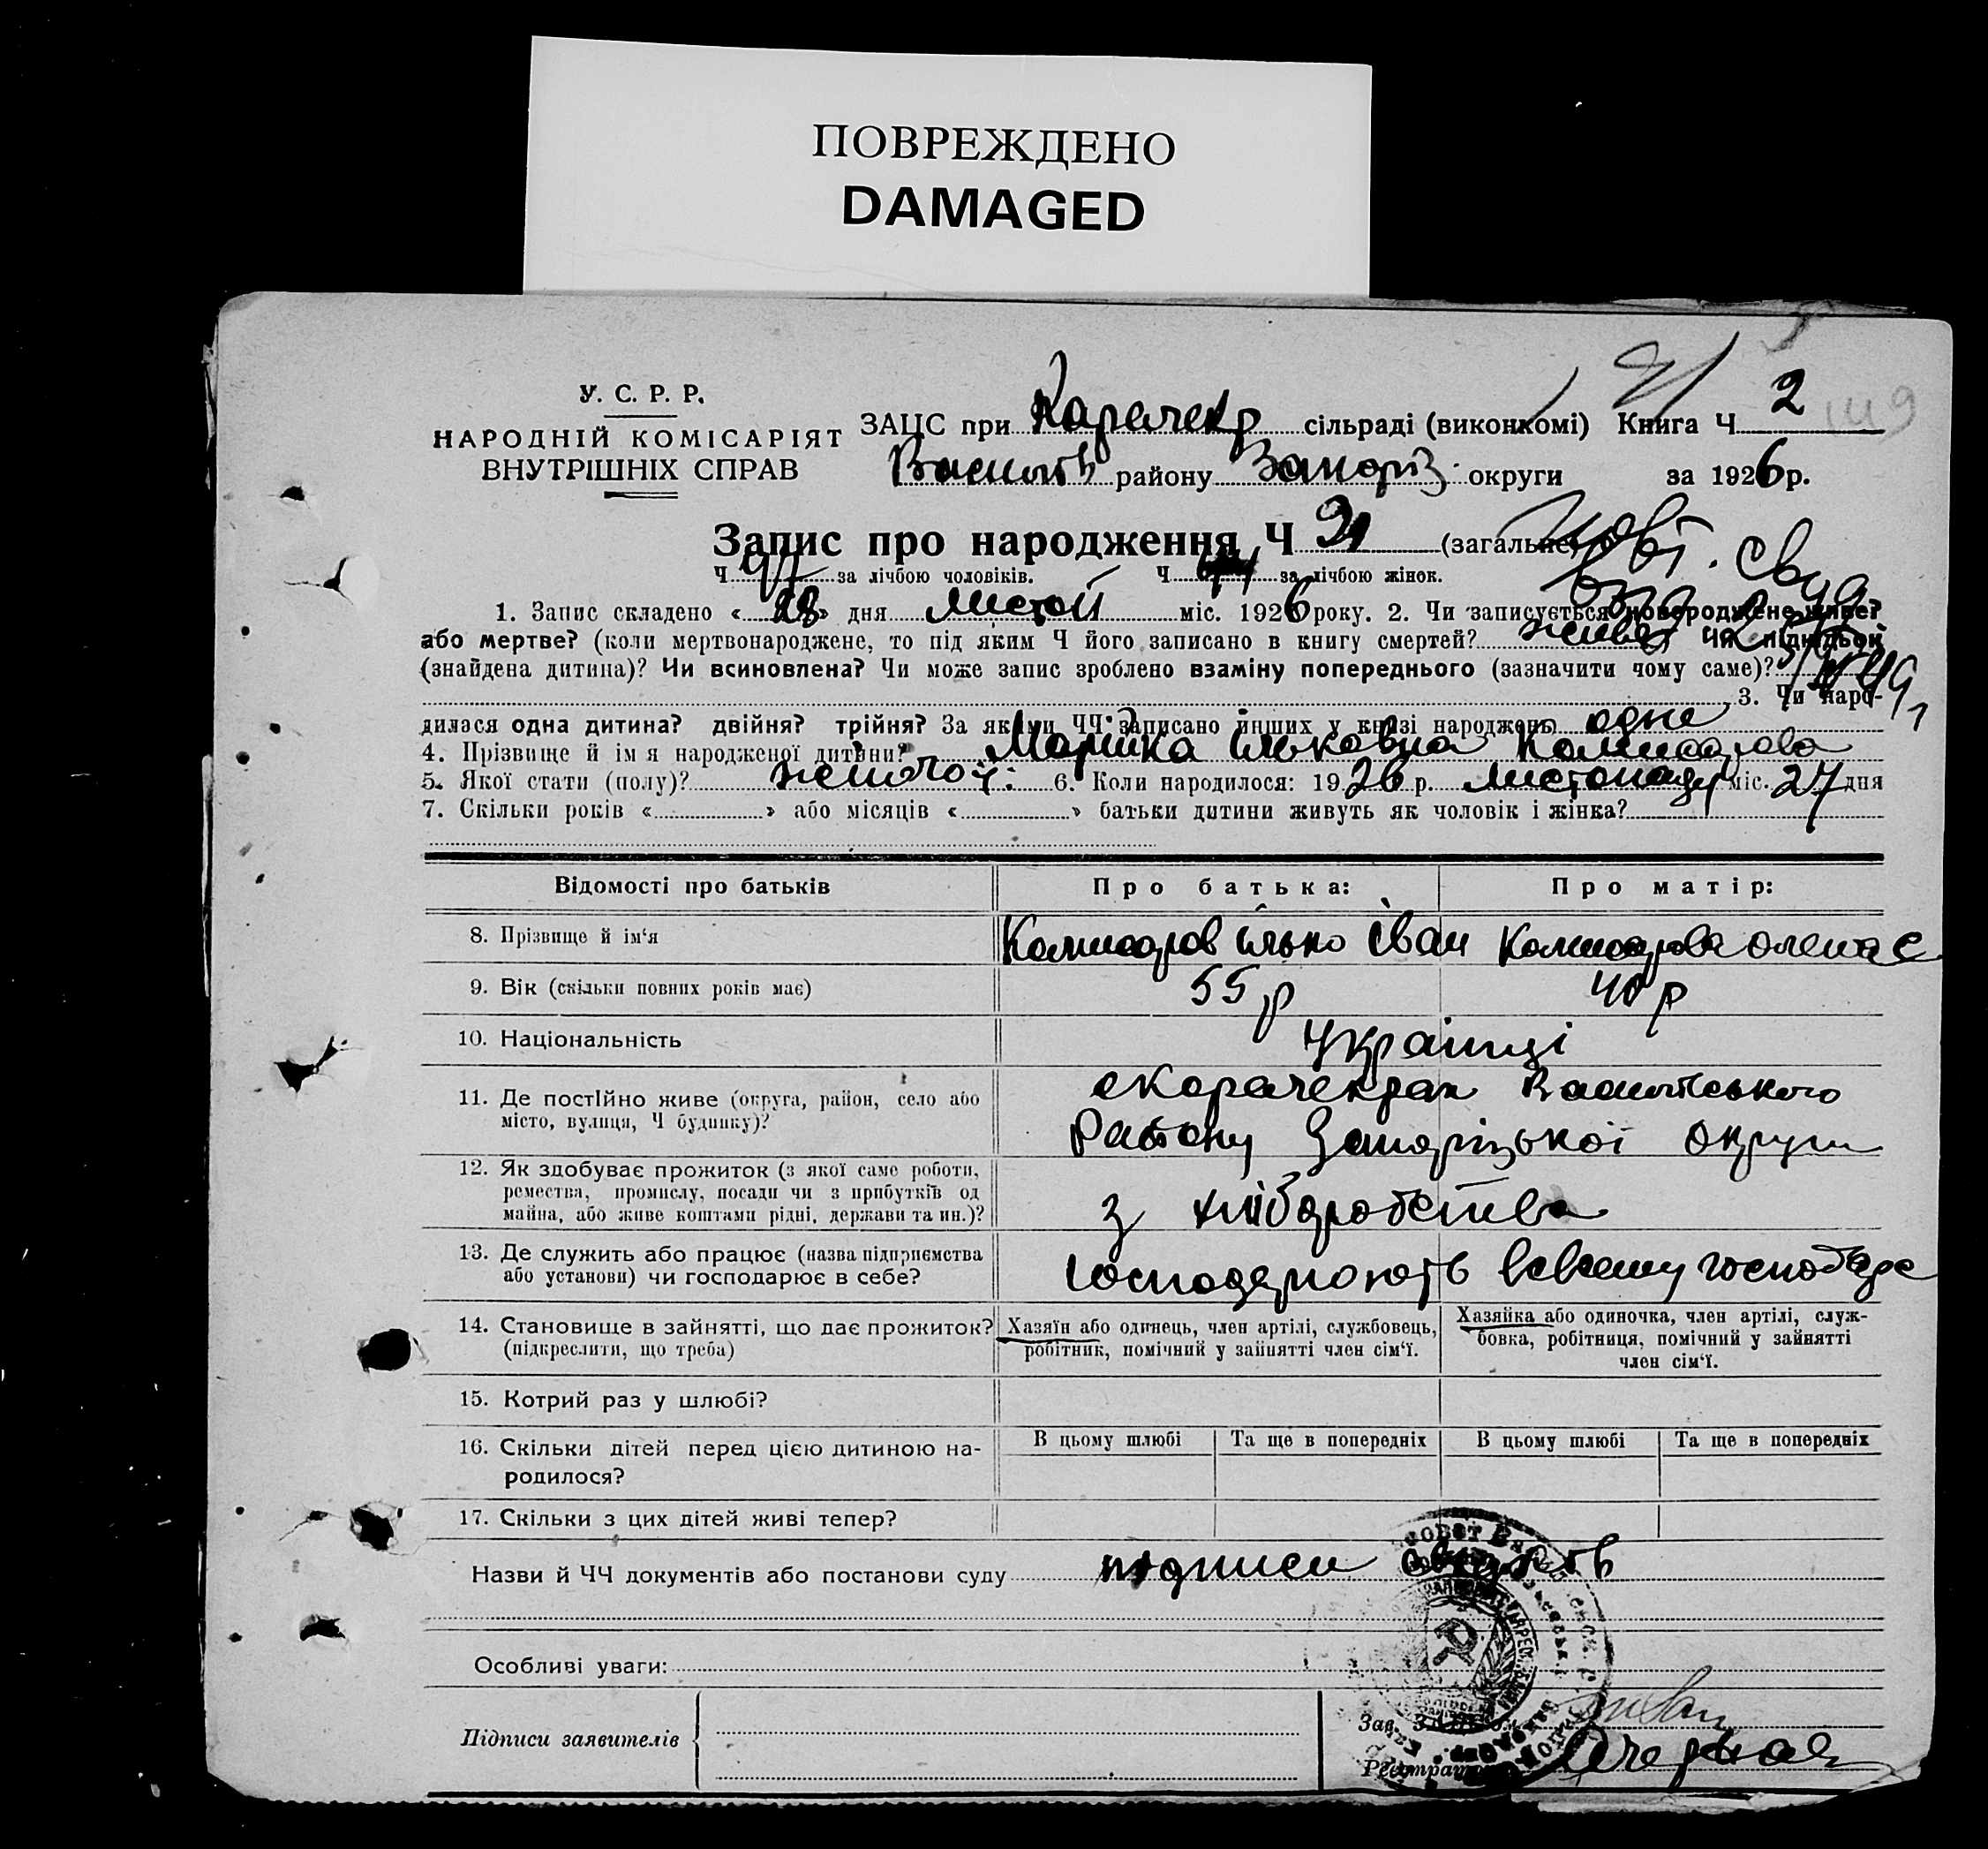 ПОВРЕЖДЕНО
DAMAGED
У. С. Р. Р.
НАРОДНІЙ КОМІСАРІЯТ
ВНУТРІШНІХ СПРАВ
ЗАЦС при Карачекр сільраді (виконкомі) Книга Ч 2
149
Василів району Запоріз округи за 1926 р.
Запис про народження Ч (загальне)
Ч 47 за лічбою чоловіків. Ч 44 за лічбою жінок.
1. Запис складено « 28 » дня листоп міс. 1926 року. 2. Чи записується новороджене живе?
або мертве? (коли мертвонароджене, то під яким Ч його записано в книгу смертей? живе Чи підкидьок
(знайдена дитина)? Чи всиновлена? Чи може запис зроблено взаміну попереднього (зазначити чому саме)?
3. Чи наро-
дилася одна дитина? двійня? трійня? За якими ЧЧ записано инших у книзі народжень одне
4. Прізвище й ім я народженої дитини? Марійка Ільковна Комисарова
5. Якої стати (полу)? жіночої. 6. Коли народилося: 1926 р. листопаду міс. 27 дня
7. Скільки років « » або місяців « » батьки дитини живуть як чоловік і жінка?
Відомості про батьків Про батька: Про матір:
8. Прізвище й ім‘я Комисаров Ілько Іван Комисарова Олена Є
9. Вік (скільки повних років має) 55 р 40 р
10. Національність Українці
11. Де постійно живе (округа, район, село або
місто, вулиця, Ч будинку)?
с Карачекрак Василівського
Району Запорізької округи
12. Як здобуває прожиток (з якої саме роботи,
ремества, промислу, посади чи з прибутків од
майна, або живе коштами рідні, держави та ин.)?
з хліборобства
13. Де служить або працює (назва підприємства
або установи) чи господарює в себе?
господарюють в свому господарс
14. Становище в зайнятті, що дає прожиток?
(підкреслити, що треба)
Хазяїн або одинець, член артілі, службовець,
робітник, помічний у зайнятті член сім‘ї.
Хазяйка або одиночка, член артілі, служ-
бовка, робітниця, помічний у зайнятті
член сім‘ї.
15. Котрий раз у шлюбі?
16. Скільки дітей перед цією дитиною на-
родилося?
В цьому шлюбі Та ще в попередніх В цьому шлюбі Та ще в попередніх
17. Скільки з цих дітей живі тепер?
Назви й ЧЧ документів або постанови суду підписи
Особливі уваги:
Підписи заявителів
Зав.